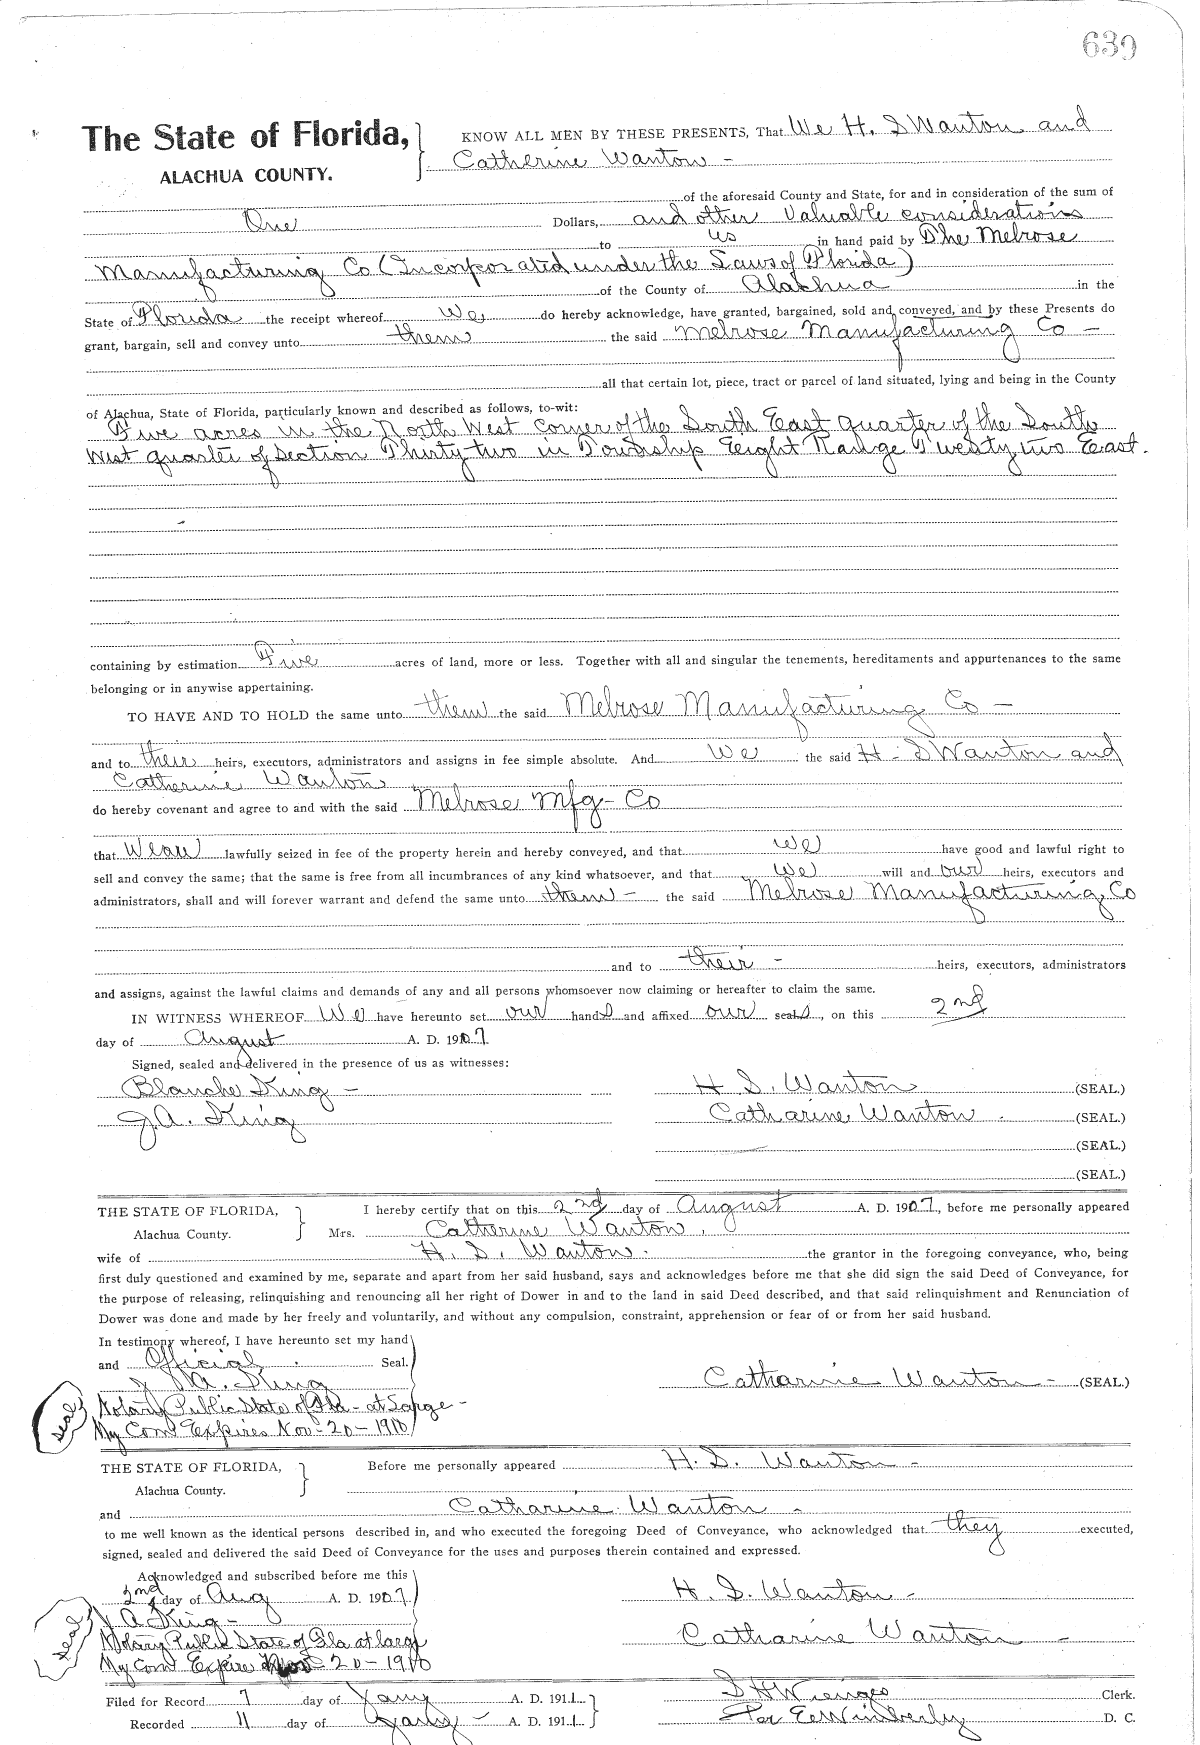 639
The State of Florida, KNOW ALL MEN BY THESE PRESENTS, That We H. S Wanton and
ALACHUA COUNTY. Catherine Wanton -
of the aforesaid County and State, for and in consideration of the sum of
One Dollars, and other Valuable considerations
to us in hand paid by The Melrose
Manufacturing Co (Incorporated under the Laws of Florida)
of the County of Alachua in the
State of Florida the receipt whereof We do hereby acknowledge, have granted, bargained, sold and conveyed, and by these Presents do
grant, bargain, sell and convey unto them the said Melrose Manufacturing Co -
all that certain lot, piece, tract or parcel of land situated, lying and being in the County
of Alachua, State of Florida, particularly known and described as follows, to-wit:
Five acres in the North West corner of the South East quarter of the South
West quarter of Section Thirty two in Township Eight Range Twenty two East.
containing by estimation Five acres of land, more or less. Together with all and singular the tenements, hereditaments and appurtenances to the same
belonging or in anywise appertaining.
TO HAVE AND TO HOLD the same unto them the said Melrose Manufacturing Co -
and to their heirs, executors, administrators and assigns in fee simple absolute. And We the said H. S Wanton and
Catherine Wanton
do hereby covenant and agree to and with the said Melrose Mfg - Co
that We are lawfully seized in fee of the property herein and hereby conveyed, and that we have good and lawful right to
sell and convey the same; that the same is free from all incumbrances of any kind whatsoever, and that we will and our heirs, executors and
administrators, shall and will forever warrant and defend the same unto them - the said Melrose Manufacturing Co
and to their - heirs, executors, administrators
and assigns, against the lawful claims and demands of any and all persons whomsoever now claiming or hereafter to claim the same.
IN WITNESS WHEREOF We have hereunto set our hands and affixed our seals, on this 2nd
day of August A. D. 1907.
Signed, sealed and delivered in the presence of us as witnesses:
Blanche King - H S. Wanton (SEAL.)
J. A. King Catharine Wanton. (SEAL.)
(SEAL.)
(SEAL.)
THE STATE OF FLORIDA, I hereby certify that on this 2nd day of August A. D. 1907, before me personally appeared
Alachua County. Mrs. Catherine Wanton.
wife of H. S. Wanton. the grantor in the foregoing conveyance, who, being
first duly questioned and examined by me, separate and apart from her said husband, says and acknowledges before me that she did sign the said Deed of Conveyance, for
the purpose of releasing, relinquishing and renouncing all her right of Dower in and to the land in said Deed described, and that said relinquishment and Renunciation of
Dower was done and made by her freely and voluntarily, and without any compulsion, constraint, apprehension or fear of or from her said husband.
In testimony whereof, I have hereunto set my hand
and Official Seal.
J. A. King Catharine Wanton - (SEAL.)
Seal Notary Public State of Fla - at Large -
My Com Expires Nov - 20 - 1910
THE STATE OF FLORIDA, Before me personally appeared H. S. Wanton -
Alachua County.
and Catharine Wanton -
to me well known as the identical persons described in, and who executed the foregoing Deed of Conveyance, who acknowledged that they executed,
signed, sealed and delivered the said Deed of Conveyance for the uses and purposes therein contained and expressed.
Acknowledged and subscribed before me this
2nd day of Aug A. D. 1907. H. S. Wanton -
J. A King -
Seal Notary Public State of Fla at large Catharine Wanton -
My Com Expire Nov 20 - 1910
Filed for Record 7 day of Jany A. D. 1911. S H Wienges Clerk.
Recorded 11 day of Jany - A. D. 1911. Per E C Wimberly D. C.